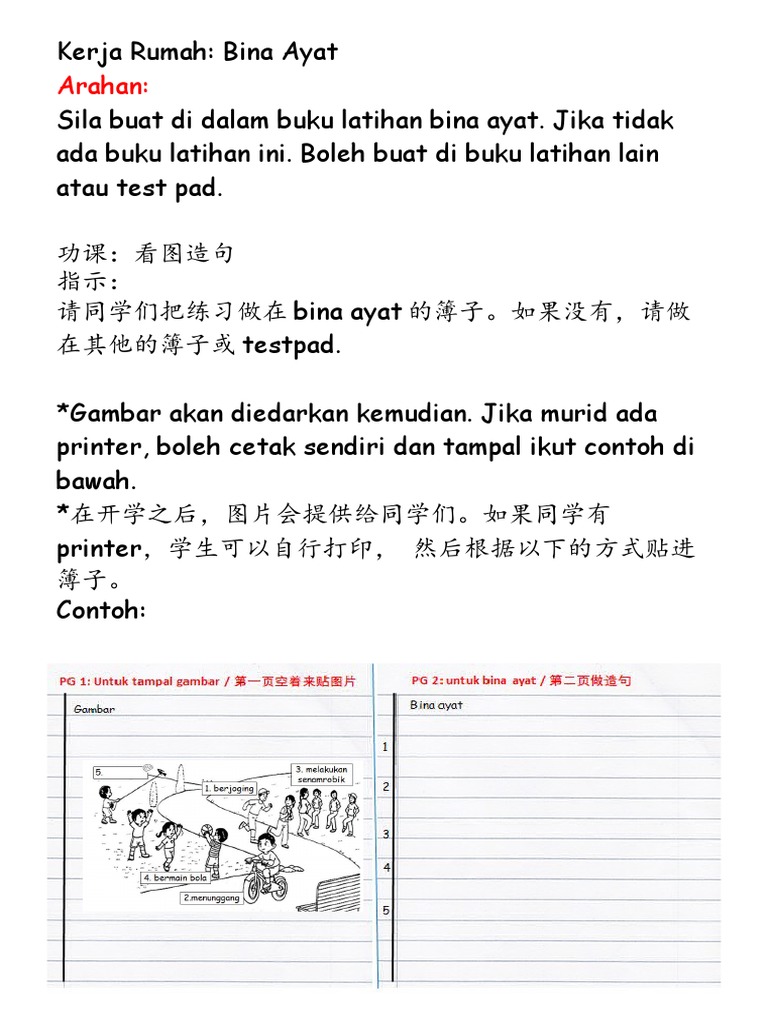 Kerja Rumah: Bina Ayat
Arahan:
Sila buat di dalam buku latihan bina ayat. Jika tidak
ada buku latihan ini. Boleh buat di buku latihan lain
atau test pad.
功课：看图造句
指示：
请同学们把练习做在 bina ayat 的簿子。如果没有，请做
在其他的簿子或 testpad.
*Gambar akan diedarkan kemudian. Jika murid ada
printer, boleh cetak sendiri dan tampal ikut contoh di
bawah.
*在开学之后，图片会提供给同学们。如果同学有
printer，学生可以自行打印， 然后根据以下的方式贴进
簿子。
Contoh:
PG 1: Untuk tampal gambar / 第一页空着来贴图片
Gambar
5.
3. melakukan
senamrobik
1. berjoging
4. bermain bola
2.menunggang
PG 2: untuk bina ayat / 第二页做造句
Bina ayat
1
2
3
4
5